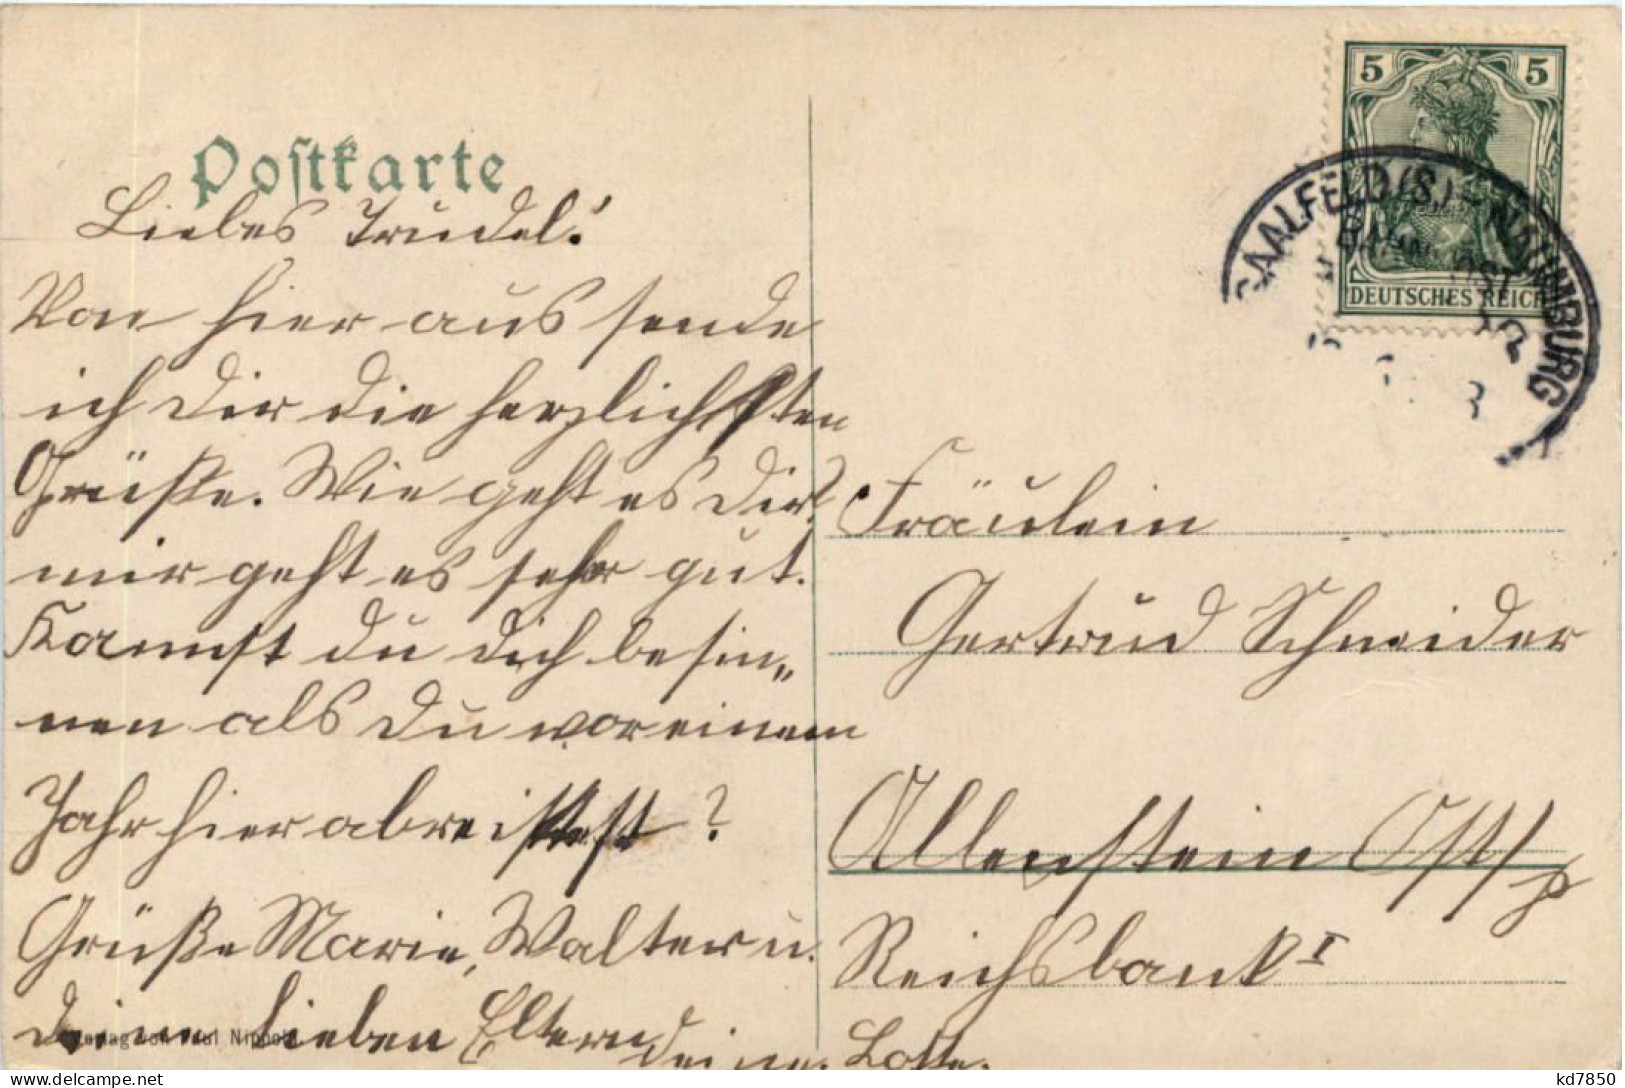 Postkarte
Liebes Trudel!
Von hier aus sende
ich Dir die herzlichsten
Grüße. Wie geht es Dir?
mir geht es sehr gut.
Kannst du dich besin„
nen als Du vor einem
Jahr hier abreistest?
Grüße Marie, Walter u.
Deine lieben Eltern
deine Lotte.
Verlag von Paul Nippold
5 5
DEUTSCHES REICH
SAALFELD (S.) - NAUMBURG
BAHNPOST
Fräulein
Gertrud Schneider
Allenstein Ostp
Reichsbank I
kd7850